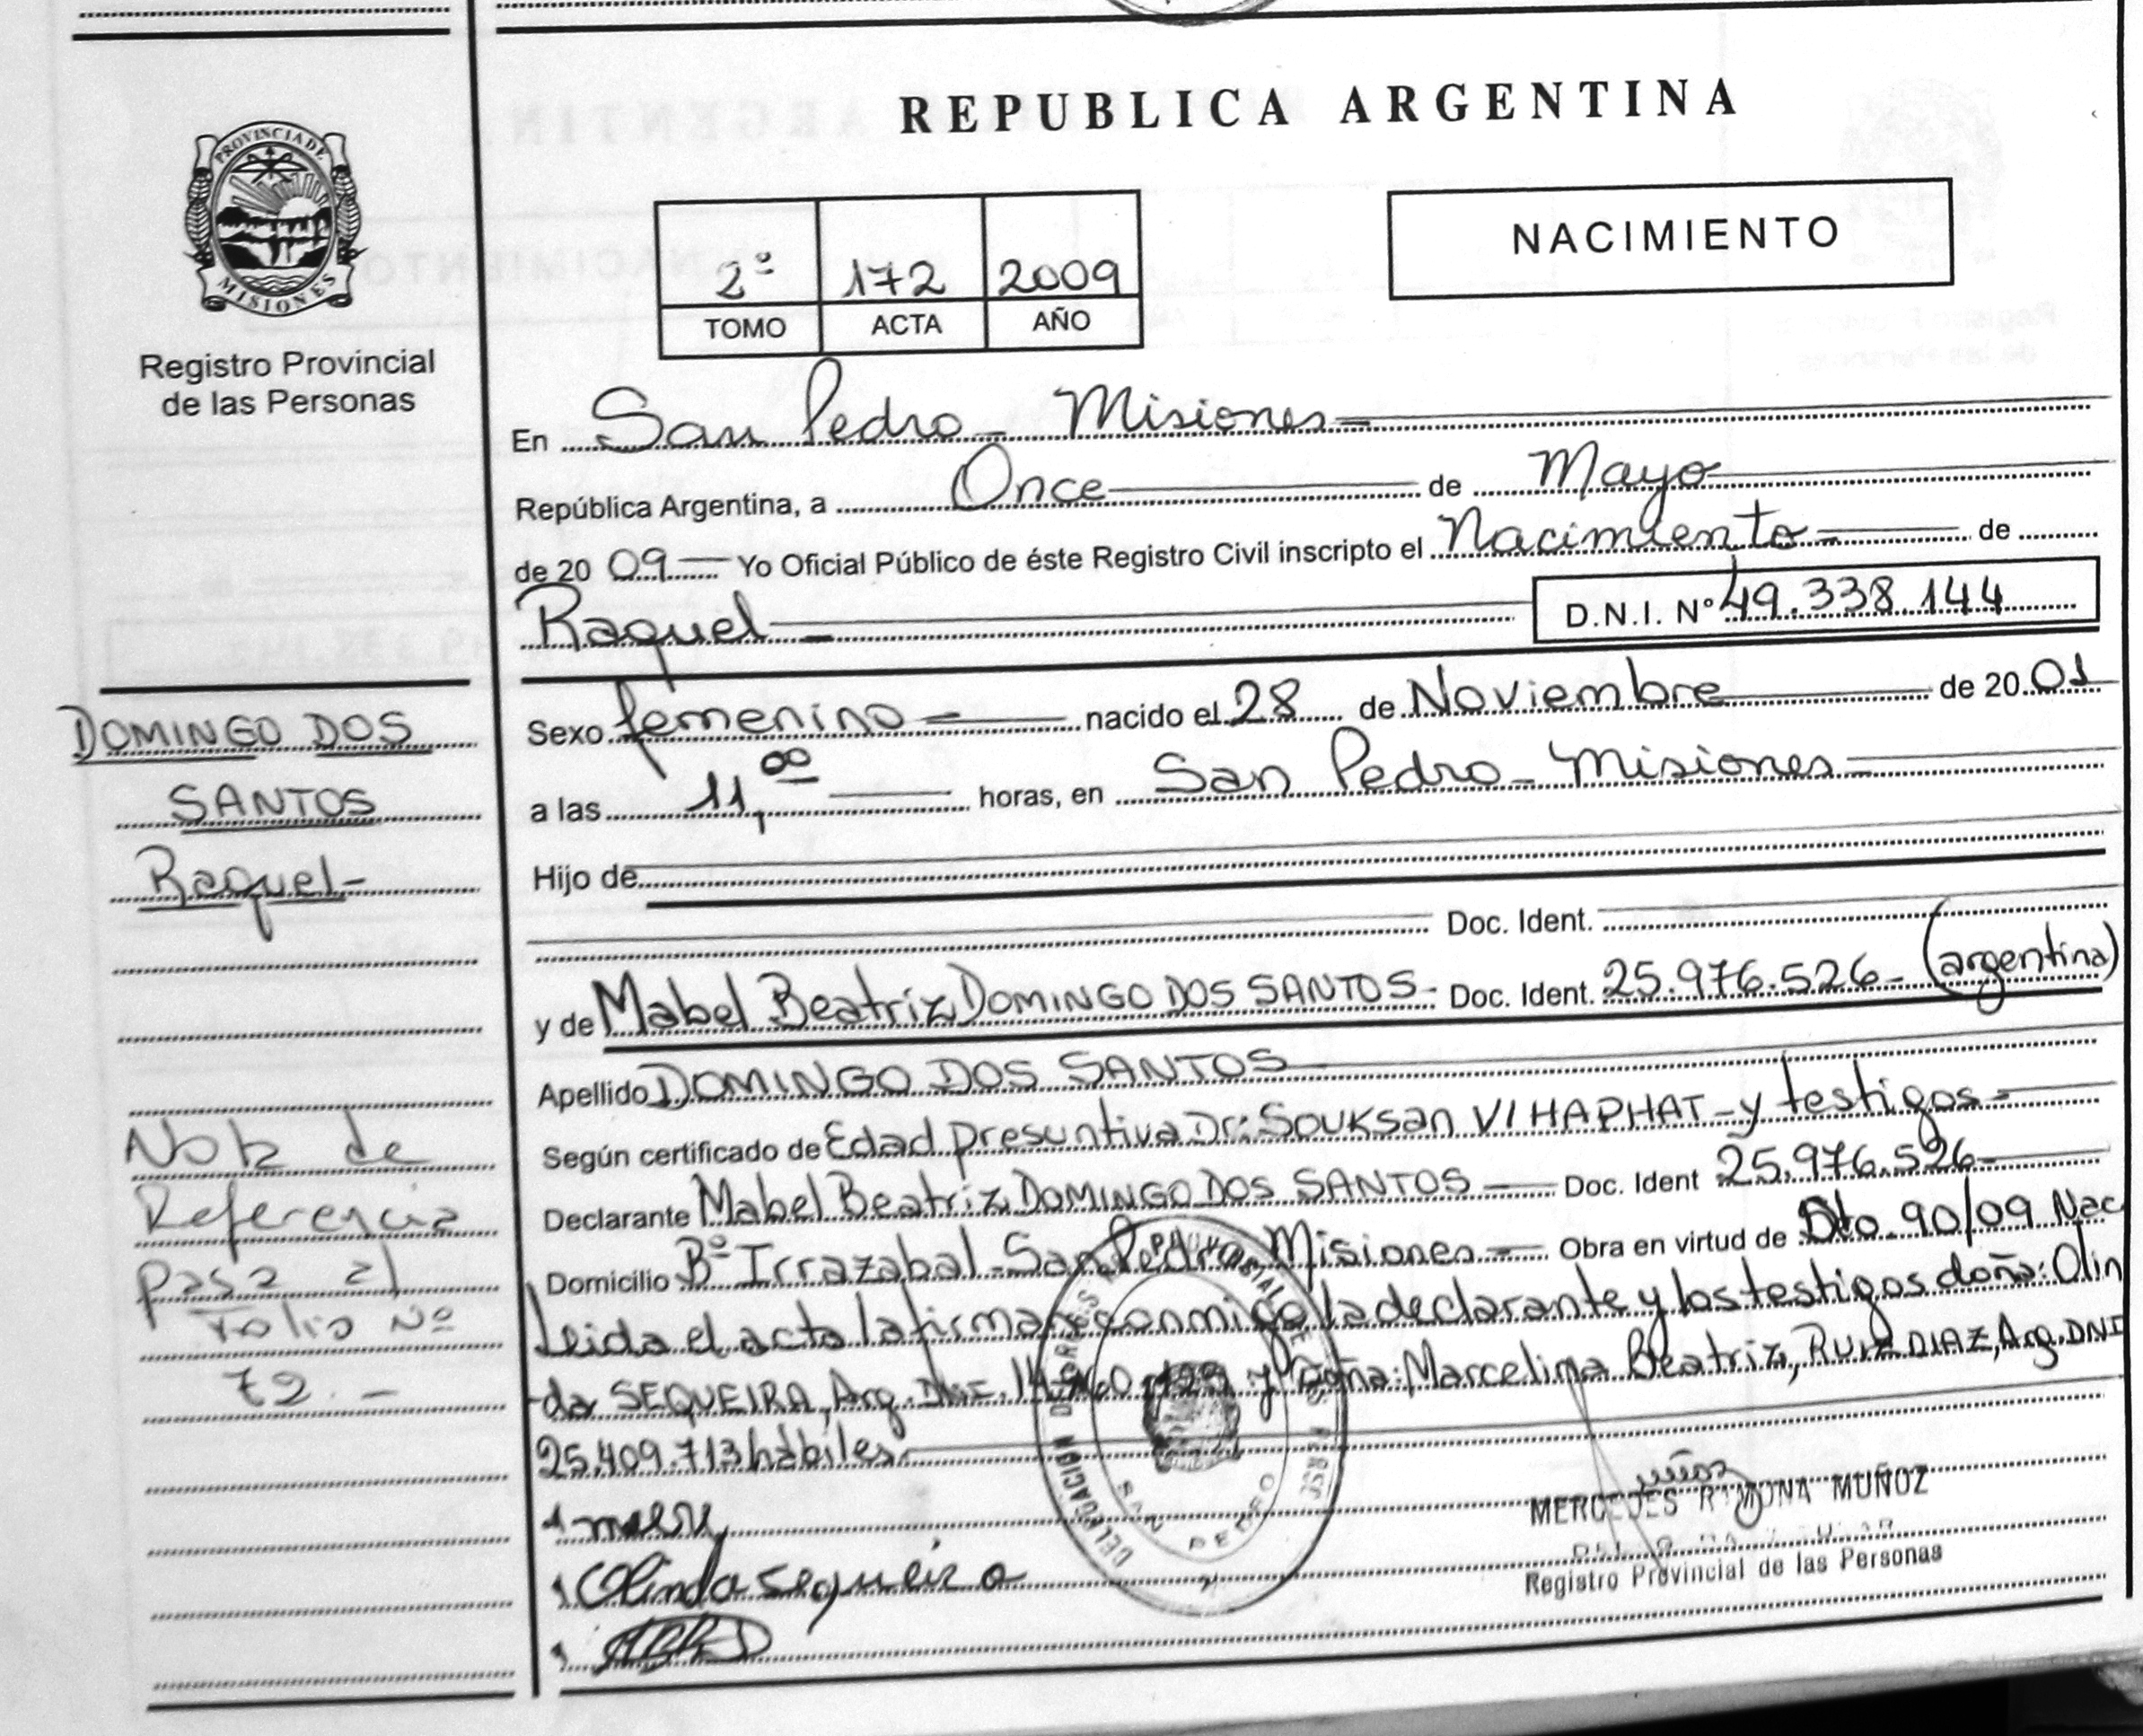 REPUBLICA ARGENTINA
PROVINCIA DE
MISIONES
Registro Provincial
de las Personas
NACIMIENTO
2º 172 2009
TOMO ACTA AÑO
En San Pedro - Misiones
República Argentina, a Once de Mayo
de 20 09 Yo Oficial Público de éste Registro Civil inscripto el Nacimiento de
Raquel D.N.I. Nº 49.338.144
DOMINGO DOS
SANTOS
Raquel-
Sexo femenino nacido el 28 de Noviembre de 20 01
a las 11,00 horas, en San Pedro - Misiones
Hijo de
Doc. Ident.
y de Mabel Beatriz, DOMINGO DOS SANTOS- Doc. Ident. 25.976.526- (argentina)
Apellido DOMINGO DOS SANTOS
Según certificado de Edad presuntiva Dr: Souksan VIHAPHAT - y testigos-
Declarante Mabel Beatriz, DOMINGO DOS SANTOS Doc. Ident 25.976.526-
Domicilio Bº Irrazabal - San Pedro Misiones Obra en virtud de Dto. 90/09 Nac
Leida el acta la firman conmigo la declarante y los testigos doña: Olin
-da SEQUEIRA, Arg. D.N.I. y Doña: Marcelina Beatriz, RUIZ DIAZ, Arg. DNI
25.409.713 hábiles.
Nota de
Referencia
pasa al
Folio Nº
72.-
Olinda sequeira
DELEGACION
SAN PEDRO
MERCEDES RAMONA MUÑOZ
Registro Provincial de las Personas